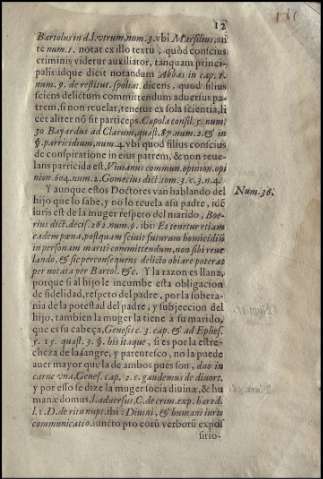 12
Bartolus in d. l. vtrum, num. 3. vbi Marsilius, an
te num. 1. notat ex illo textu, quòd conscius
criminis videtur auxiliator, tanquam princi-
palis: idque dicit notandum Abbas in cap. 1.
num. 9. de restitut. spoliat. dicens, quod filius
sciens delictum committendum aduersus pa-
trem, si non reuelat, tenetur ex sola scientia, li
cet aliter nõ sit particeps. Cepola consil. 5. num.
30 Bayardus ad Clarum, quæst. 87. num. 2. & in
§. parricidium, num. 4. vbi quod filius conscius
de conspiratione in eius patrem, & non reue-
lans parricida est. Viuianus commun. opinion. opi
nion. 604. num. 2. Gomecius dict. tom. 3. c. 3. n. 4.
Y aunque estos Doctores van hablando del
hijo que lo sabe, y no lo reuela a su padre, idẽ
iuris est de la muger respeto del marido, Boe-
rius dict. decis. 262. num. 9. ibi: Es tenetur etiam
eadem pœna, postquam sciuit futurum homicidiũ
in personam mariti committendum, non sibi reue
lando, & sic per consequens delicto obiare poterat
per notata per Bartol. &c. Y la razon es llana,
porque si al hijo le incumbe esta obligacion
de fidelidad, respeto del padre, por la sobera-
nia de la potestad del padre, y subjeccion del
hijo, tambien la muger la tiene a su marido,
que es su cabeça, Genesi c. 3. cap. & ad Ephes.
5. 15. quæst. 3. §. his itaque, si es por la estre-
cheza de la sangre, y parentesco, no la puede
auer mayor que la de ambos pues son, duo in
carne vna, Genes. cap. 2. c. gaudemus de diuort.
y por esso se dize la muger socia diuinæ, & hu
manæ domus, l. aduersus, C. de crim. exp. hæred.
l. 1. D. de ritu nupt. ibi: Diuini, & humani iuris
communicatio, iuncto pro eorũ verborũ expos
sitio-
Num. 36.